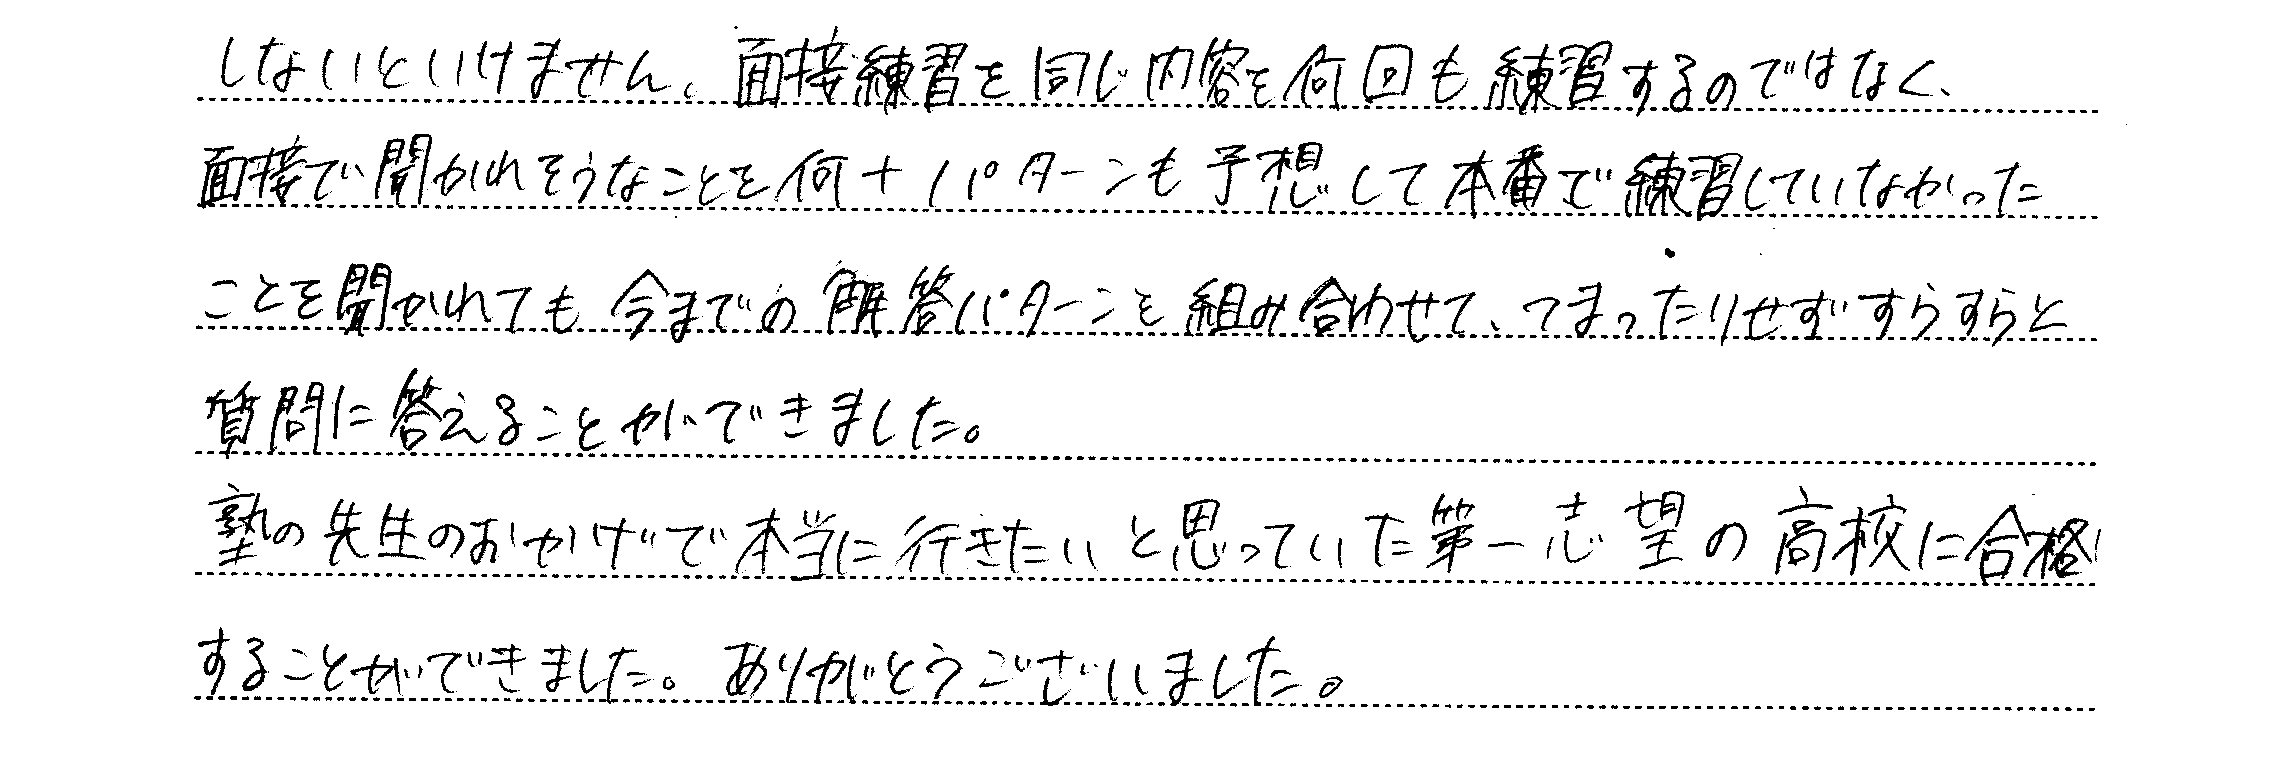 しないといけません。面接練習を同じ内容を何回も練習するのではなく、
面接で聞かれそうなことを何十パターンも予想して本番で練習していなかった
ことを聞かれても今までの解答パターンを組み合わせて、つまったりせずすらすらと
質問に答えることができました。
塾の先生のおかげで本当に行きたいと思っていた第一志望の高校に合格
することができました。ありがとうございました。